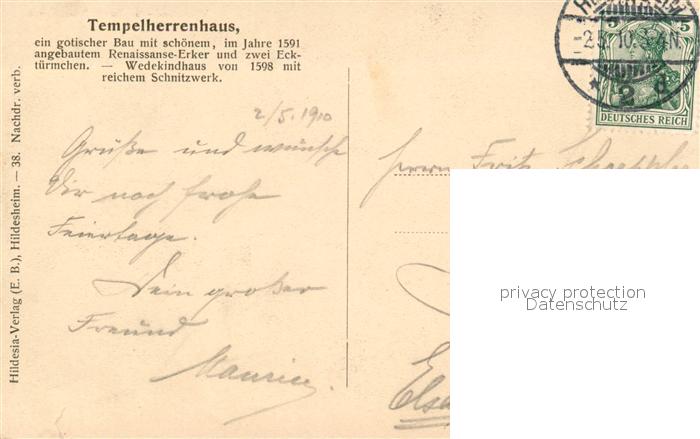 Tempelherrenhaus,
ein gotischer Bau mit schönem, im Jahre 1591
angebautem Renaissanse-Erker und zwei Eck-
türmchen. — Wedekindhaus von 1598 mit
reichem Schnitzwerk.
Hildesia-Verlag (E. B.), Hildesheim. — 38. Nachdr. verb.
2/5. 1910
Grüße und wünsche
Dir noch frohe
Feiertage.
Dein großer
Freund
Herrn Fritz
5 5
DEUTSCHES REICH
privacy protection
Datenschutz